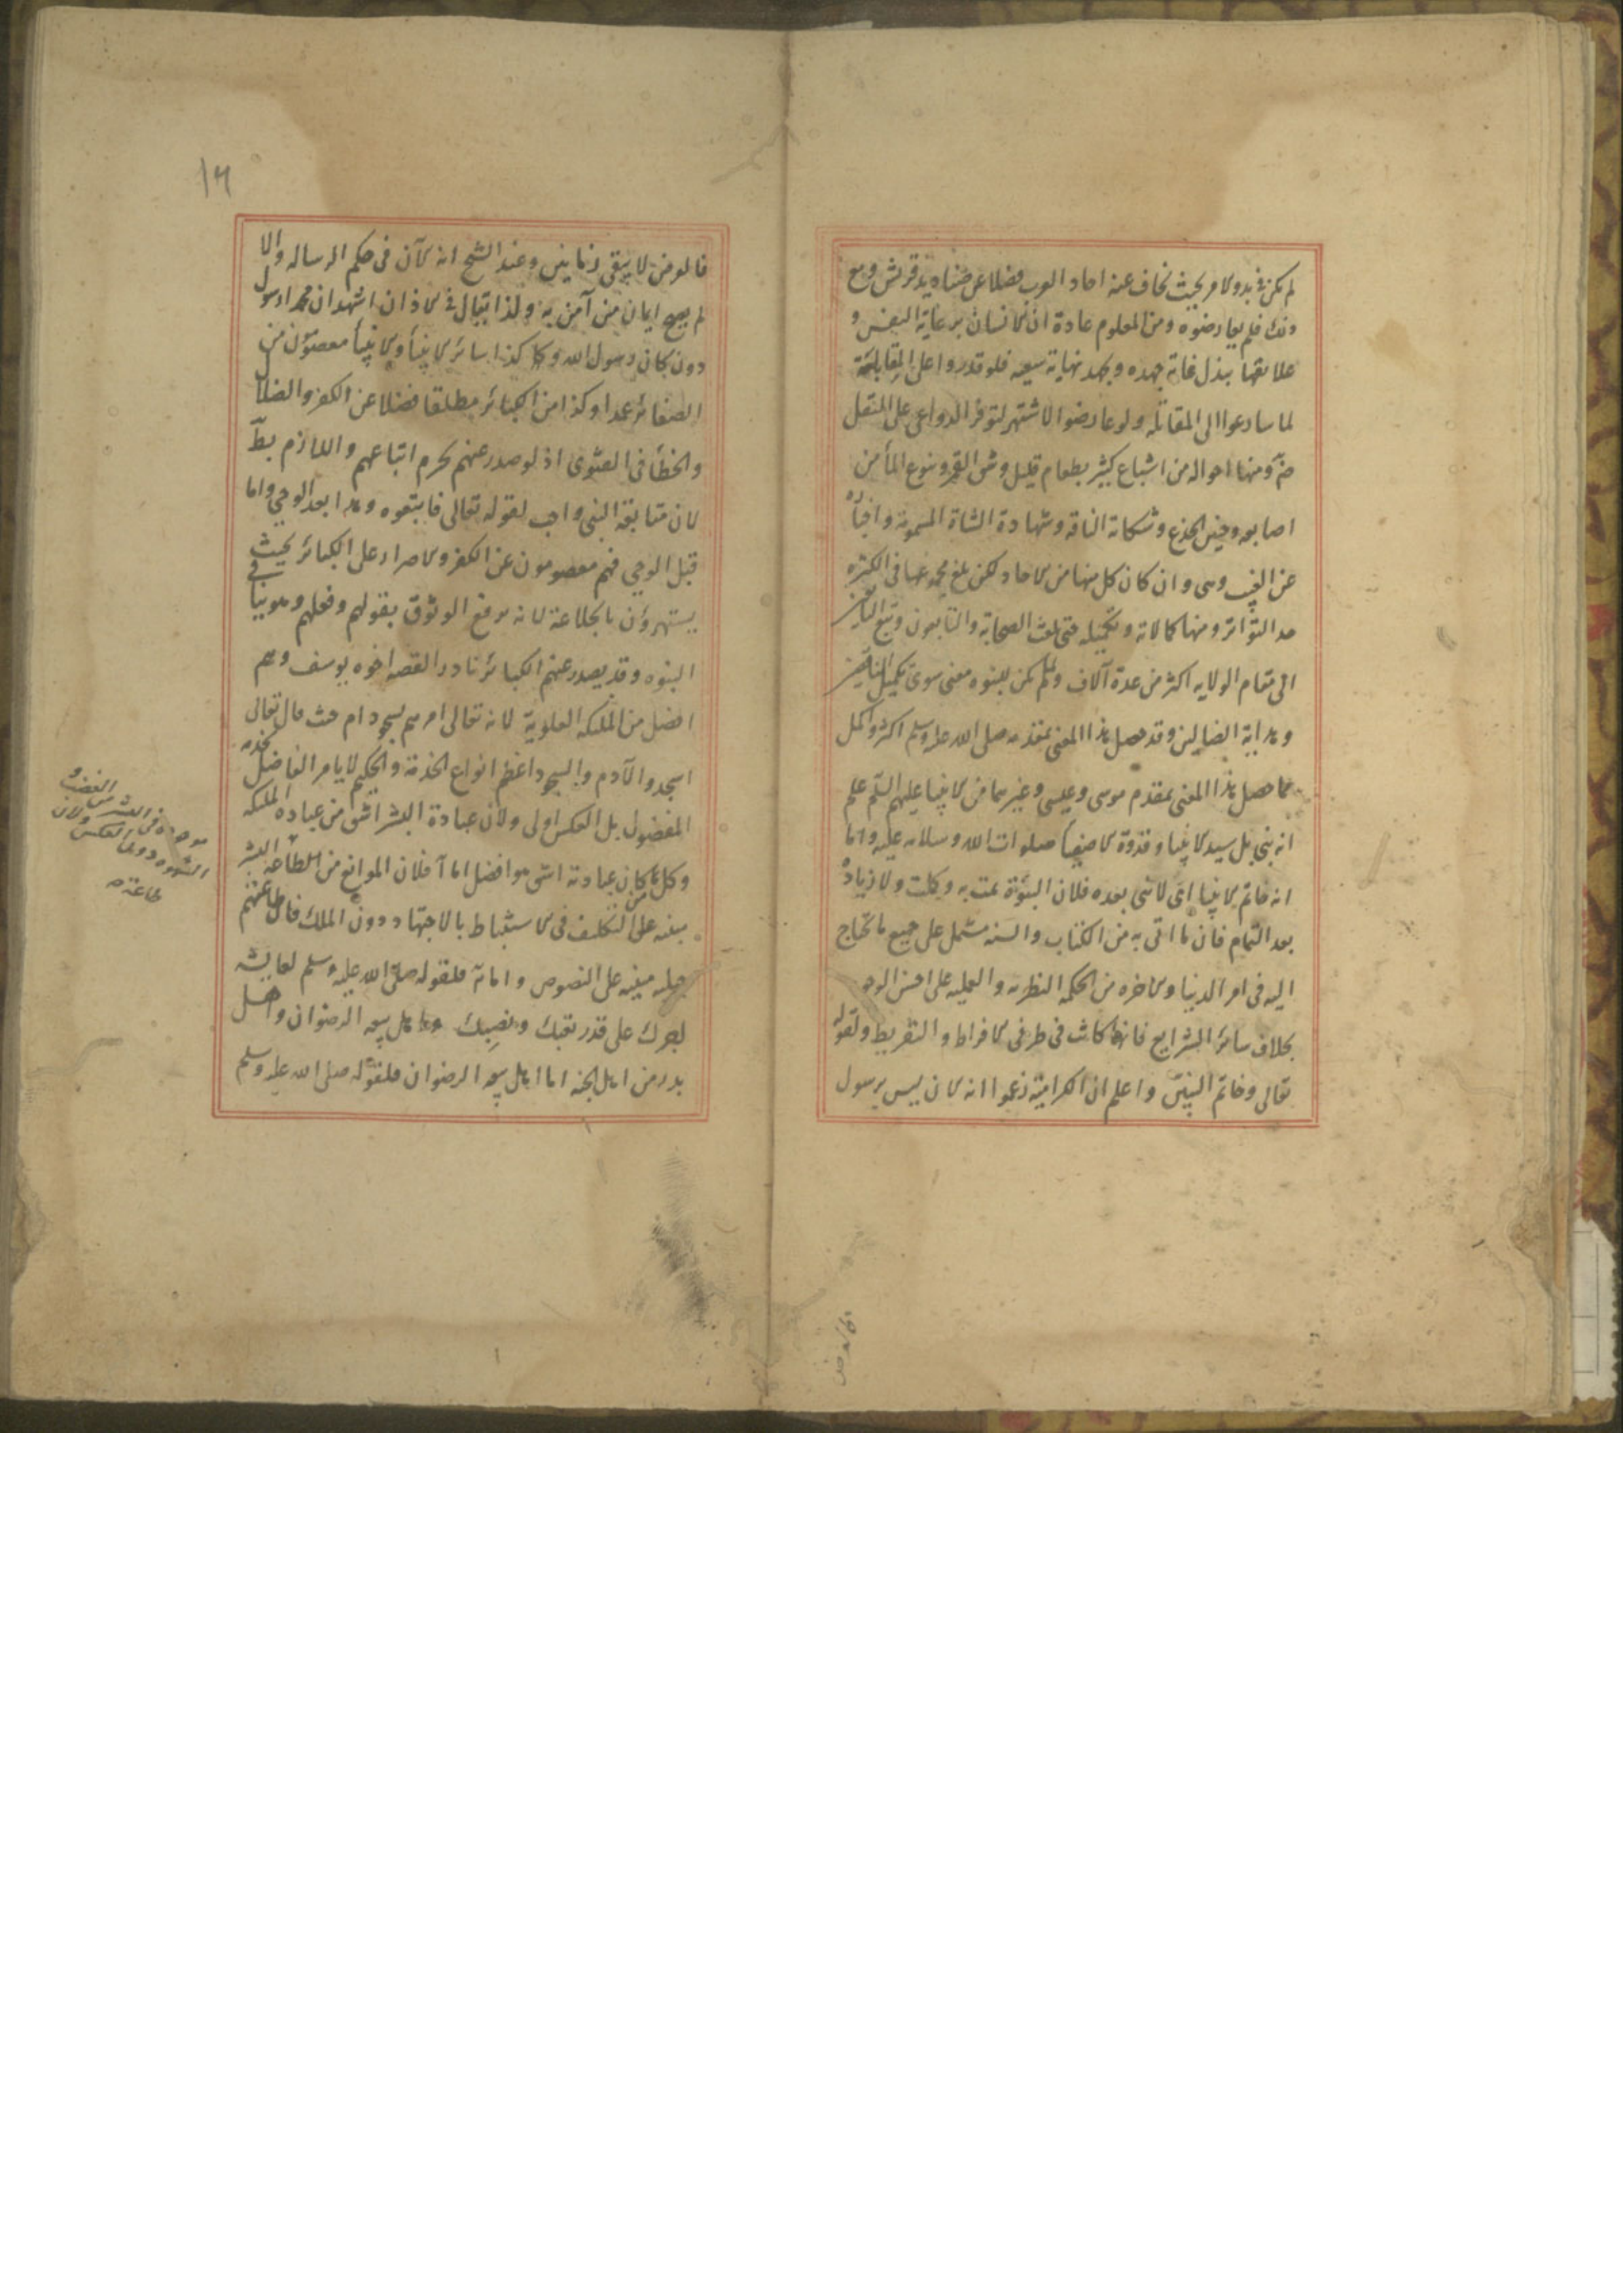 لم يكن فى بدو الامر بحيث يخاف عنه احاد العرب فضلا عن صناديد قريش ومع
ذلك فلم يعارضوه ومن المعلوم عادة ان الانسان برعاية النفس و
علائقها يبذل غاية جهده ويجهد نهاية سعيه فلو قدروا على المقابلة
لما سارعوا الى المقاتلة ولو عارضوا لاشتهر لتوفر الدواعى على النقل
ومنها احواله من اشباع كثير بطعام قليل وشق القمر ونبوع الماء من
اصابعه وحنين الجذع وشكاية الناقة وشهادة الشاة المسمومة واخباره
عن الغيب وهى وان كان كل منها من الاحاد لكن بلغ مجموعها فى الكثرة
حد التواتر ومنها كمالاته وتكميله حتى بلغت الصحابة والتابعون وتبع التابعين
الى مقام الولاية اكثر من عدة آلاف ولم يكن للنبوة معنى سوى تكميل الناقصين
وهداية الضالين وقد حصل هذا المعنى بمقدمه صلى الله عليه وسلم اكثر واكمل
مما حصل هذا المعنى بمقدم موسى وعيسى وغيرهما من الانبيا عليهم السلم علم
انه نبى بل سيد الانبيا وقدوة الاصفيا صلوات الله وسلامه عليه واما
انه خاتم الانبيا اى لا نبى بعده فلان النبوة تمت به وكملت ولا زيادة
بعد التمام فان ما اتى به من الكتاب والسنة مشتمل على جميع ما يحتاج
اليه فى امر الدنيا والاخرة من الحكمة النظرية والعملية على احسن الوجوه
بخلاف سائر الشرايع فانها كانت فى طرفى الافراط والتفريط ولقوله
تعالى وخاتم النبيين واعلم ان الكرامية زعموا انه الان ليس برسول
١٦
فالعرض لا يبقى زمانين وعند الشيخ انه الآن فى حكم الرسالة والا
لم يصح ايمان من آمن به ولذا يقال فى الاذان اشهد ان محمدا رسول
دون كان رسول الله وكذا سائر الانبيا والانبيا معصومون من
الصغائر عمدا وكذا من الكبائر مطلقا فضلا عن الكفر والضلال
والخطأ فى الفتوى اذ لو صدر عنهم لحرم اتباعهم واللازم بط
لان متابعة النبى واجب لقوله تعالى فاتبعوه وهذا بعد الوحى واما
قبل الوحى فهم معصومون عن الكفر والاصرار على الكبائر بحيث
يستهزؤن بالخلاعة لانه يرفع الوثوق بقولهم وفعلهم وهو ينافى
النبوة وقد يصدر عنهم الكبائر نادرا لقصة اخوه يوسف وهم
افضل من الملئكة العلوية لانه تعالى امرهم بسجود ادم حيث قال تعالى
اسجدوا لآدم والسجود اعظم انواع الخدمة والحكيم لا يأمر الفاضل بخدمة
المفضول بل العكس اولى ولان عبادة البشر اشق من عبادة الملئكة
وكل من كان عبادته اشق هو افضل اما آ فلان الموانع من الطاعة للبشر
مبنية على التكليف فى الاستنباط بالاجتهاد دون الملك فان طاعتهم
جبلية مبنية على النصوص واما ثانيا فلقوله صلى الله عليه وسلم لعايشة
اجرك على قدر تعبك ونصبك واهل بيعة الرضوان واهل
بدر من اهل الجنة اما اهل بيعة الرضوان فلقوله صلى الله عليه وسلم
موجودة فى البشر من الغضب و
الشهوة دون العكس ولان
طاعته